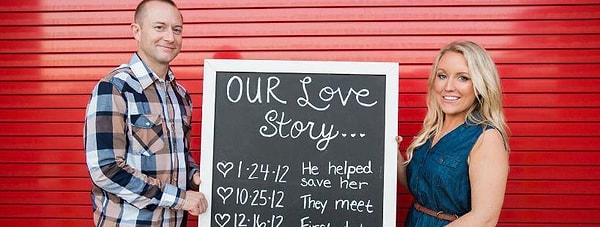 OUR Love
Story...
♡ 1·24·12 He helped
save her
♡ 10·25·12 They meet
♡ 12·16·12